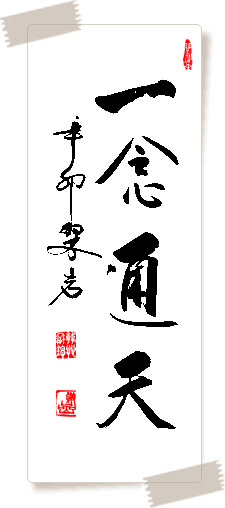 一念通天
辛卯